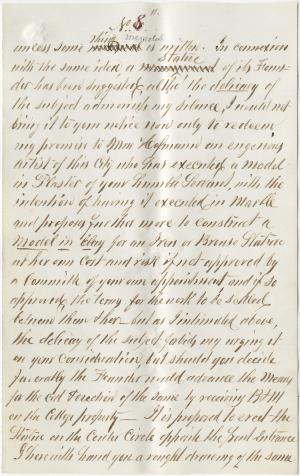 No 8
11.
thing
unless some is written. In connexion
Statue
with the same idea a of its Foun-
der has been suggested, altho the delicacy of
the subject admonish my silence, I would not
bring it to your notice now only to redeem
my promise to Mrs an engenious
artist of this City who has executed a model
in Plaster of your humble Servant, with the
intention of having it executed in Marble
and proposes further more to construct a
Model in Clay for an Iron or Bronse Stature
at her own Cost and risk if not approved by
a Committe of your own appointment and if so
approved, the terms for the work to be settled
between them & her but as I intimated above,
the delicacy of the subject forbids my urging it
on your Consideration, but should you decide
favorably the Founder would advance the Means
for the of the same by receiving
on the College property — It is proposed to erect the
Stature on the Center Circle opposite the front entrance
I herewith hand you a rought drawing of the same